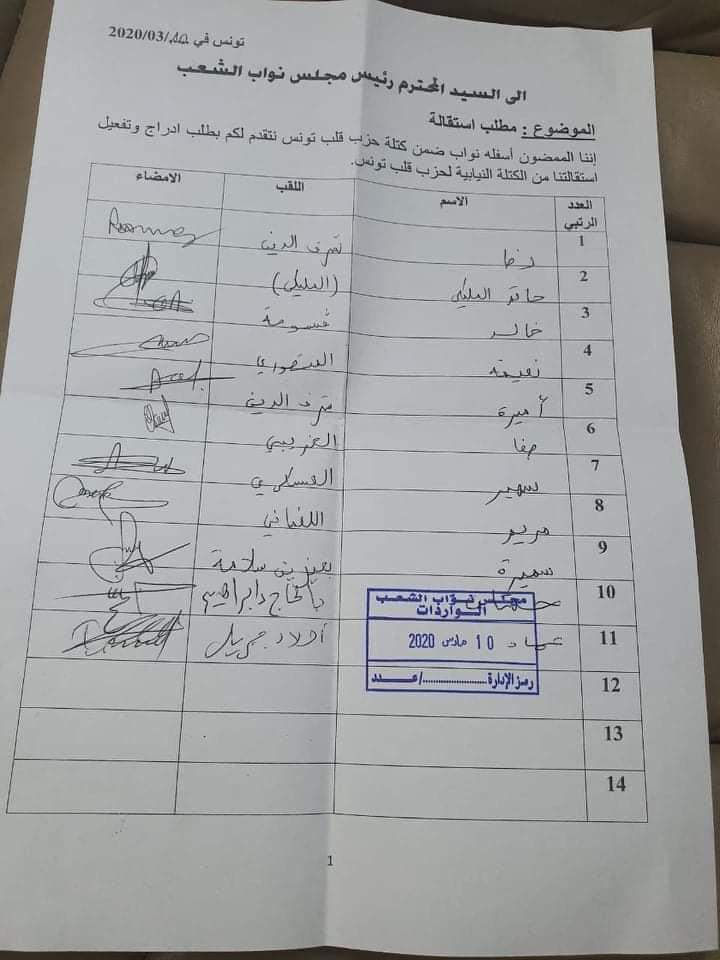 تونس في 2020/03/
الى السيد المحترم رئيس مجلس نواب الشعب
الموضوع : مطلب استقالة
إننا الممضون أسفله نواب ضمن كتلة حزب قلب تونس نتقدم لكم بطلب ادراج وتفعيل
استقالتنا من الكتلة النيابية لحزب قلب تونس.
العدد الرتبي الاسم اللقب الامضاء
1 رضا شرف الدين
2 حاتم المليكي (المليكي)
3 خالد قسومة
4 نعيمة المنصوري
5 أميرة شرف الدين
6 صفا الغريبي
7 سهير العسكري
8 مريم اللغماني
9 سميرة بن سلامة
10 بالحاج ابراهيم
11 عماد أولاد جبريل
12
13
14
مجلس نواب الشعب
الواردات
10 مارس 2020
رمز الإدارة ............/عـدد
1